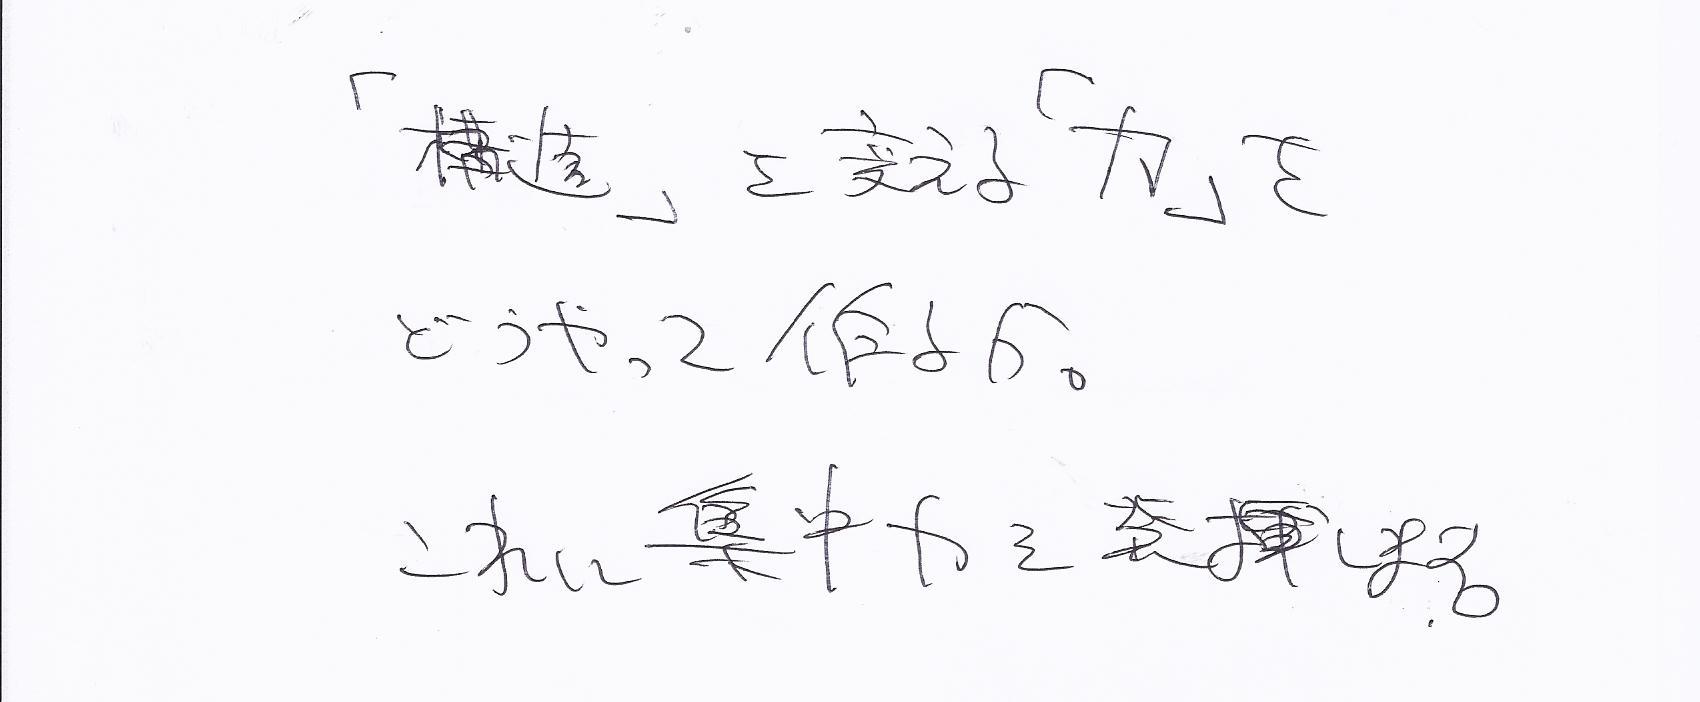 「構造」を変える「力」を
どうやって作るか。
これに集中力を発揮しまる